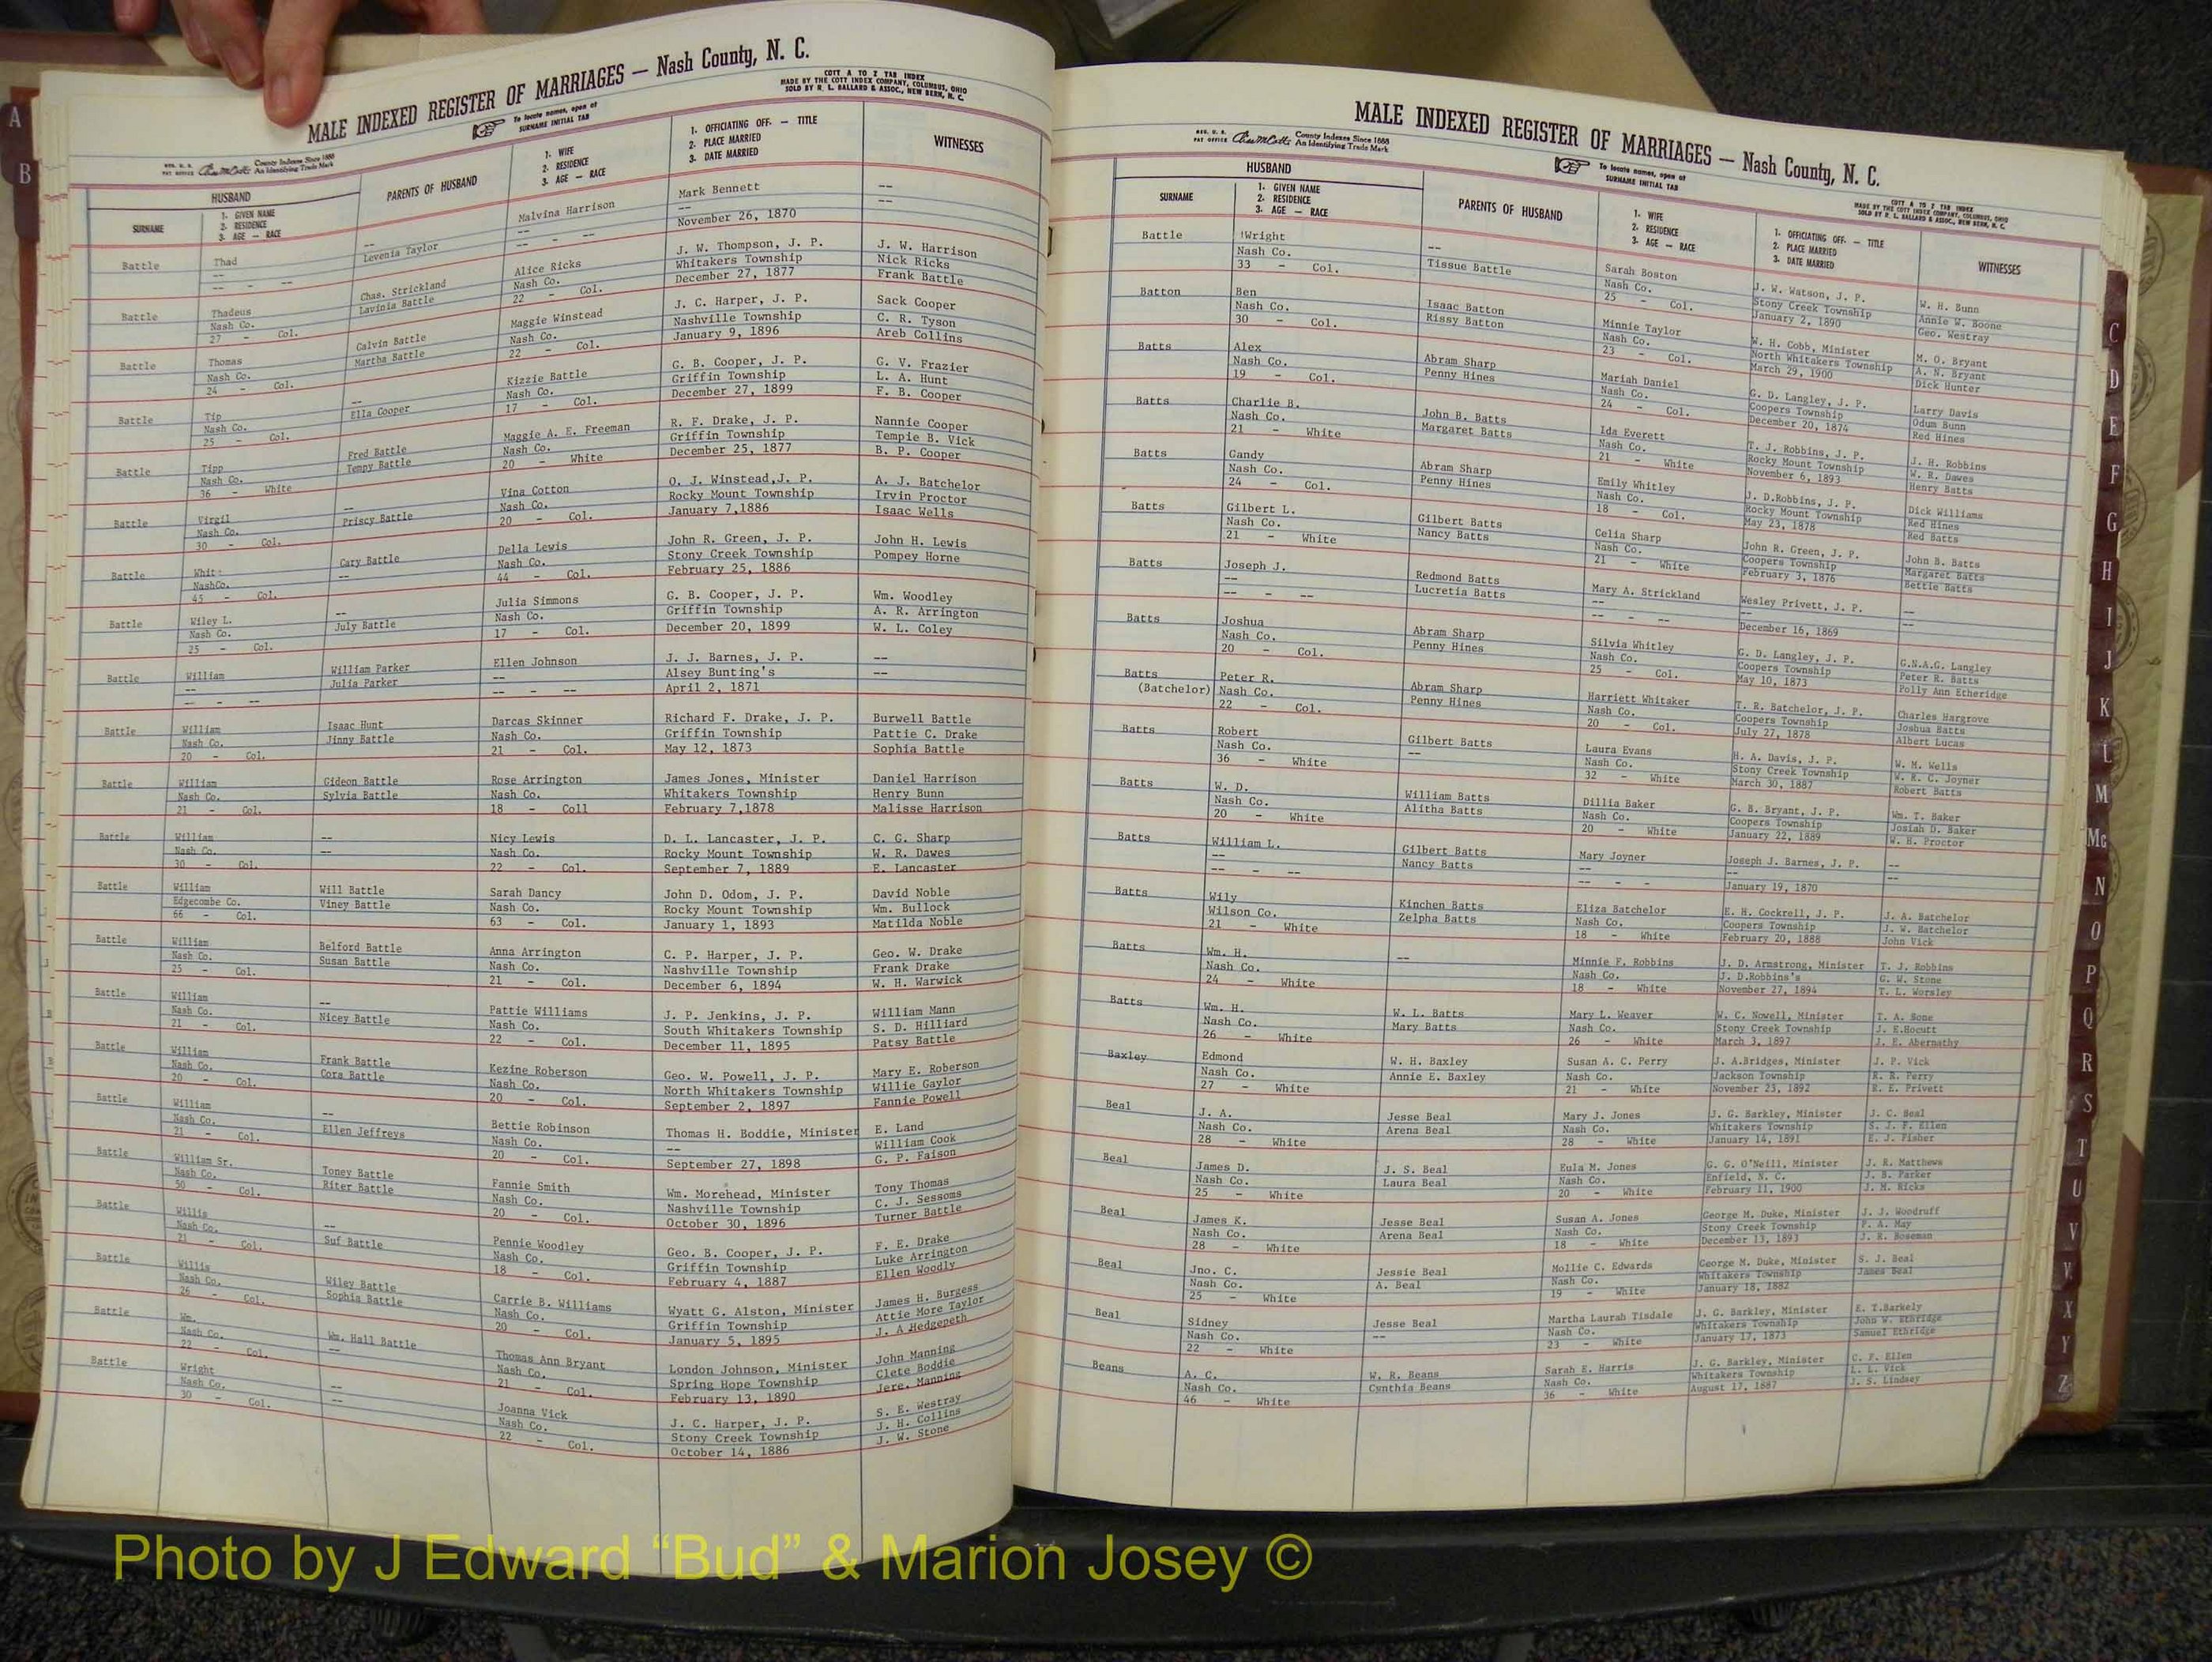 MALE INDEXED REGISTER OF MARRIAGES — Nash County, N. C.
COTT A TO Z TAB INDEX
MADE BY THE COTT INDEX COMPANY, COLUMBUS, OHIO
SOLD BY R. L. BALLARD & ASSOC., NEW BERN, N. C.
To locate names, open at
SURNAME INITIAL TAB
REG. U. S.
PAT OFFICE
County Indexes Since 1888
An Identifying Trade Mark
HUSBAND
SURNAME
1. GIVEN NAME
2. RESIDENCE
3. AGE — RACE
PARENTS OF HUSBAND
1. WIFE
2. RESIDENCE
3. AGE — RACE
1. OFFICIATING OFF. — TITLE
2. PLACE MARRIED
3. DATE MARRIED
WITNESSES
Battle Thad -- Malvina Harrison Mark Bennett --
-- Levenia Taylor -- -- --
-- - -- -- - -- November 26, 1870
Battle Thadeus Chas. Strickland Alice Ricks J. W. Thompson, J. P. J. W. Harrison
Nash Co. Lavinia Battle Nash Co. Whitakers Township Nick Ricks
27 - Col. 22 - Col. December 27, 1877 Frank Battle
Battle Thomas Calvin Battle Maggie Winstead J. C. Harper, J. P. Sack Cooper
Nash Co. Martha Battle Nash Co. Nashville Township C. R. Tyson
24 - Col. 22 - Col. January 9, 1896 Areb Collins
Battle Tip -- Kizzie Battle G. B. Cooper, J. P. G. V. Frazier
Nash Co. Ella Cooper Nash Co. Griffin Township L. A. Hunt
25 - Col. 17 - Col. December 27, 1899 F. B. Cooper
Battle Tipp Fred Battle Maggie A. E. Freeman R. F. Drake, J. P. Nannie Cooper
Nash Co. Tempy Battle Nash Co. Griffin Township Tempie B. Vick
36 - White 20 - White December 25, 1877 B. P. Cooper
Battle Virgil -- Vina Cotton O. J. Winstead,J. P. A. J. Batchelor
Nash Co. Priscy Battle Nash Co. Rocky Mount Township Irvin Proctor
30 - Col. 20 - Col. January 7,1886 Isaac Wells
Battle Cary Battle Della Lewis John R. Green, J. P. John H. Lewis
NashCo. -- Nash Co. Stony Creek Township Pompey Horne
45 - Col. 44 - Col. February 25, 1886
Battle Wiley L. -- Julia Simmons G. B. Cooper, J. P. Wm. Woodley
Nash Co. July Battle Nash Co. Griffin Township A. R. Arrington
25 - Col. 17 - Col. December 20, 1899 W. L. Coley
Battle William William Parker Ellen Johnson J. J. Barnes, J. P. --
-- Julia Parker -- Alsey Bunting's --
-- - -- -- - -- April 2, 1871
Battle William Isaac Hunt Darcas Skinner Richard F. Drake, J. P. Burwell Battle
Nash Co. Jinny Battle Nash Co. Griffin Township Pattie C. Drake
20 - Col. 21 - Col. May 12, 1873 Sophia Battle
Battle William Gideon Battle Rose Arrington James Jones, Minister Daniel Harrison
Nash Co. Sylvia Battle Nash Co. Whitakers Township Henry Bunn
21 - Col. 18 - Coll February 7,1878 Malisse Harrison
Battle William -- Nicy Lewis D. L. Lancaster, J. P. C. G. Sharp
Nash Co. -- Nash Co. Rocky Mount Township W. R. Dawes
30 - Col. 22 - Col. September 7, 1889 E. Lancaster
Battle William Will Battle Sarah Dancy John D. Odom, J. P. David Noble
Edgecombe Co. Viney Battle Nash Co. Rocky Mount Township Wm. Bullock
66 - Col. 63 - Col. January 1, 1893 Matilda Noble
Battle William Belford Battle Anna Arrington C. P. Harper, J. P. Geo. W. Drake
Nash Co. Susan Battle Nash Co. Nashville Township Frank Drake
25 - Col. 21 - Col. December 6, 1894 W. H. Warwick
Battle William -- Pattie Williams J. P. Jenkins, J. P. William Mann
Nash Co. Nicey Battle Nash Co. South Whitakers Township S. D. Hilliard
21 - Col. 22 - Col. December 11, 1895 Patsy Battle
Battle William Frank Battle Kezine Roberson Geo. W. Powell, J. P. Mary E. Roberson
Nash Co. Cora Battle Nash Co. North Whitakers Township Willie Gaylor
20 - Col. 20 - Col. September 2, 1897 Fannie Powell
Battle William -- Bettie Robinson Thomas H. Boddie, Minister E. Land
Nash Co. Ellen Jeffreys Nash Co. -- William Cook
21 - Col. 20 - Col. September 27, 1898 G. P. Faison
Battle William Sr. Toney Battle Fannie Smith Wm. Morehead, Minister Tony Thomas
Nash Co. Riter Battle Nash Co. Nashville Township C. J. Sessoms
50 - Col. 20 - Col. October 30, 1896 Turner Battle
Battle Willis -- Pennie Woodley Geo. B. Cooper, J. P. F. E. Drake
Nash Co. Suf Battle Nash Co. Griffin Township Luke Arrington
21 - Col. 18 - Col. February 4, 1887 Ellen Woodly
Battle Willis Wiley Battle Carrie B. Williams Wyatt G. Alston, Minister James H. Burgess
Nash Co. Sophia Battle Nash Co. Griffin Township Attie More Taylor
26 - Col. 20 - Col. January 5, 1895 J. A Hedgepeth
Battle Wm. Wm. Hall Battle Thomas Ann Bryant London Johnson, Minister John Manning
Nash Co. -- Nash Co. Spring Hope Township Clete Boddie
22 - Col. 21 - Col. February 13, 1890 Jere. Manning
Battle Wright -- Joanna Vick J. C. Harper, J. P. S. E. Westray
Nash Co. -- Nash Co. Stony Creek Township J. H. Collins
30 - Col. 22 - Col. October 14, 1886 J. W. Stone
MALE INDEXED REGISTER OF MARRIAGES — Nash County, N. C.
REG. U. S.
PAT OFFICE
County Indexes Since 1888
An Identifying Trade Mark
To locate names, open at
SURNAME INITIAL TAB
COTT A TO Z TAB INDEX
MADE BY THE COTT INDEX COMPANY, COLUMBUS, OHIO
SOLD BY R. L. BALLARD & ASSOC., NEW BERN, N. C.
HUSBAND
SURNAME
1. GIVEN NAME
2. RESIDENCE
3. AGE — RACE
PARENTS OF HUSBAND
1. WIFE
2. RESIDENCE
3. AGE — RACE
1. OFFICIATING OFF. — TITLE
2. PLACE MARRIED
3. DATE MARRIED
WITNESSES
Battle Wright -- Sarah Boston J. W. Watson, J. P. W. H. Bunn
Nash Co. Tissue Battle Nash Co. Stony Creek Township Annie W. Boone
33 - Col. 25 - Col. January 2, 1890 Geo. Westray
Batton Ben Isaac Batton Minnie Taylor W. H. Cobb, Minister M. O. Bryant
Nash Co. Rissy Batton Nash Co. North Whitakers Township A. N. Bryant
30 - Col. 23 - Col. March 29, 1900 Dick Hunter
Batts Alex Abram Sharp Mariah Daniel G. D. Langley, J. P. Larry Davis
Nash Co. Penny Hines Nash Co. Coopers Township Odum Bunn
19 - Col. 24 - Col. December 20, 1874 Red Hines
Batts Charlie B. John B. Batts Ida Everett T. J. Robbins, J. P. J. H. Robbins
Nash Co. Margaret Batts Nash Co. Rocky Mount Township W. R. Dawes
21 - White 21 - White November 6, 1893 Henry Batts
Batts Gandy Abram Sharp Emily Whitley J. D.Robbins, J. P. Dick Williams
Nash Co. Penny Hines Nash Co. Rocky Mount Township Red Hines
24 - Col. 18 - Col. May 23, 1878 Red Batts
Batts Gilbert L. Gilbert Batts Celia Sharp John R. Green, J. P. John B. Batts
Nash Co. Nancy Batts Nash Co. Coopers Township Margaret Batts
21 - White 21 - White February 3, 1876 Bettie Batts
Batts Joseph J. Redmond Batts Mary A. Strickland Wesley Privett, J. P. --
-- Lucretia Batts -- --
-- - -- -- - -- December 16, 1869
Batts Joshua Abram Sharp Silvia Whitley G. D. Langley, J. P. G.N.A.G. Langley
Nash Co. Penny Hines Nash Co. Coopers Township Peter R. Batts
20 - Col. 25 - Col. May 10, 1873 Polly Ann Etheridge
Batts Peter R. Abram Sharp Harriett Whitaker T. R. Batchelor, J. P. Charles Hargrove
(Batchelor) Nash Co. Penny Hines Nash Co. Coopers Township Joshua Batts
22 - Col. 20 - Col. July 27, 1878 Albert Lucas
Batts Robert Gilbert Batts Laura Evans H. A. Davis, J. P. W. M. Wells
Nash Co. -- Nash Co. Stony Creek Township W. R. C. Joyner
36 - White 32 - White March 30, 1887 Robert Batts
Batts W. D. William Batts Dillia Baker G. B. Bryant, J. P. Wm. T. Baker
Nash Co. Alitha Batts Nash Co. Coopers Township Josiah D. Baker
20 - White 20 - White January 22, 1889 W. H. Proctor
Batts William L. Gilbert Batts Mary Joyner Joseph J. Barnes, J. P. --
-- Nancy Batts -- -- --
-- - -- -- - - January 19, 1870
Batts Wily Kinchen Batts Eliza Batchelor E. H. Cockrell, J. P. J. A. Batchelor
Wilson Co. Zelpha Batts Nash Co. Coopers Township J. W. Batchelor
21 - White 18 - White February 20, 1888 John Vick
Batts Wm. H. -- Minnie F. Robbins J. D. Armstrong, Minister T. J. Robbins
Nash Co. Nash Co. J. D.Robbins's G. W. Stone
24 - White 18 - White November 27, 1894 T. L. Worsley
Batts Wm. H. W. L. Batts Mary L. Weaver W. C. Nowell, Minister T. A. Sone
Nash Co. Mary Batts Nash Co. Stony Creek Township J. E.Hocutt
26 - White 26 - White March 3, 1897 J. E. Abernathy
Baxley Edmond W. H. Baxley Susan A. C. Perry J. A.Bridges, Minister J. P. Vick
Nash Co. Annie E. Baxley Nash Co. Jackson Township R. R. Perry
27 - White 21 - White November 23, 1892 R. E. Privett
Beal J. A. Jesse Beal Mary J. Jones J. G. Barkley, Minister J. C. Beal
Nash Co. Arena Beal Nash Co. Whitakers Township S. J. F. Ellen
28 - White 28 - White January 14, 1891 E. J. Fisher
Beal James D. J. S. Beal Eula M. Jones G. G. O'Neill, Minister J. R. Matthews
Nash Co. Laura Beal Nash Co. Enfield, N. C. J. B. Parker
25 - White 20 - White February 11, 1900 J. M. Ricks
Beal James K. Jesse Beal Susan A. Jones George M. Duke, Minister J. J. Woodruff
Nash Co. Arena Beal Nash Co. Stony Creek Township F. A. May
28 - White 18 - White December 13, 1893 J. R. Boseman
Beal Jno. C. Jessie Beal Mollie C. Edwards George M. Duke, Minister S. J. Beal
Nash Co. A. Beal Nash Co. Whitakers Township James Beal
25 - White 19 - White January 18, 1882
Beal Sidney Jesse Beal Martha Laurah Tisdale J. G. Barkley, Minister E. T.Barkely
Nash Co. -- Nash Co. Whitakers Township John W. Ethridge
22 - White 23 - White January 17, 1873 Samuel Ethridge
Beans A. C. W. R. Beans Sarah E. Harris J. G. Barkley, Minister C. F. Ellen
Nash Co. Cynthia Beans Nash Co. Whitakers Township L. L. Vick
46 - White 36 - White August 17, 1887 J. S. Lindsey
A
B
C
D
E
F
G
H
I
J
K
L
M
Mc
N
O
P
Q
R
S
T
U
V
X
Y
Z
Photo by J Edward “Bud” & Marion Josey ©